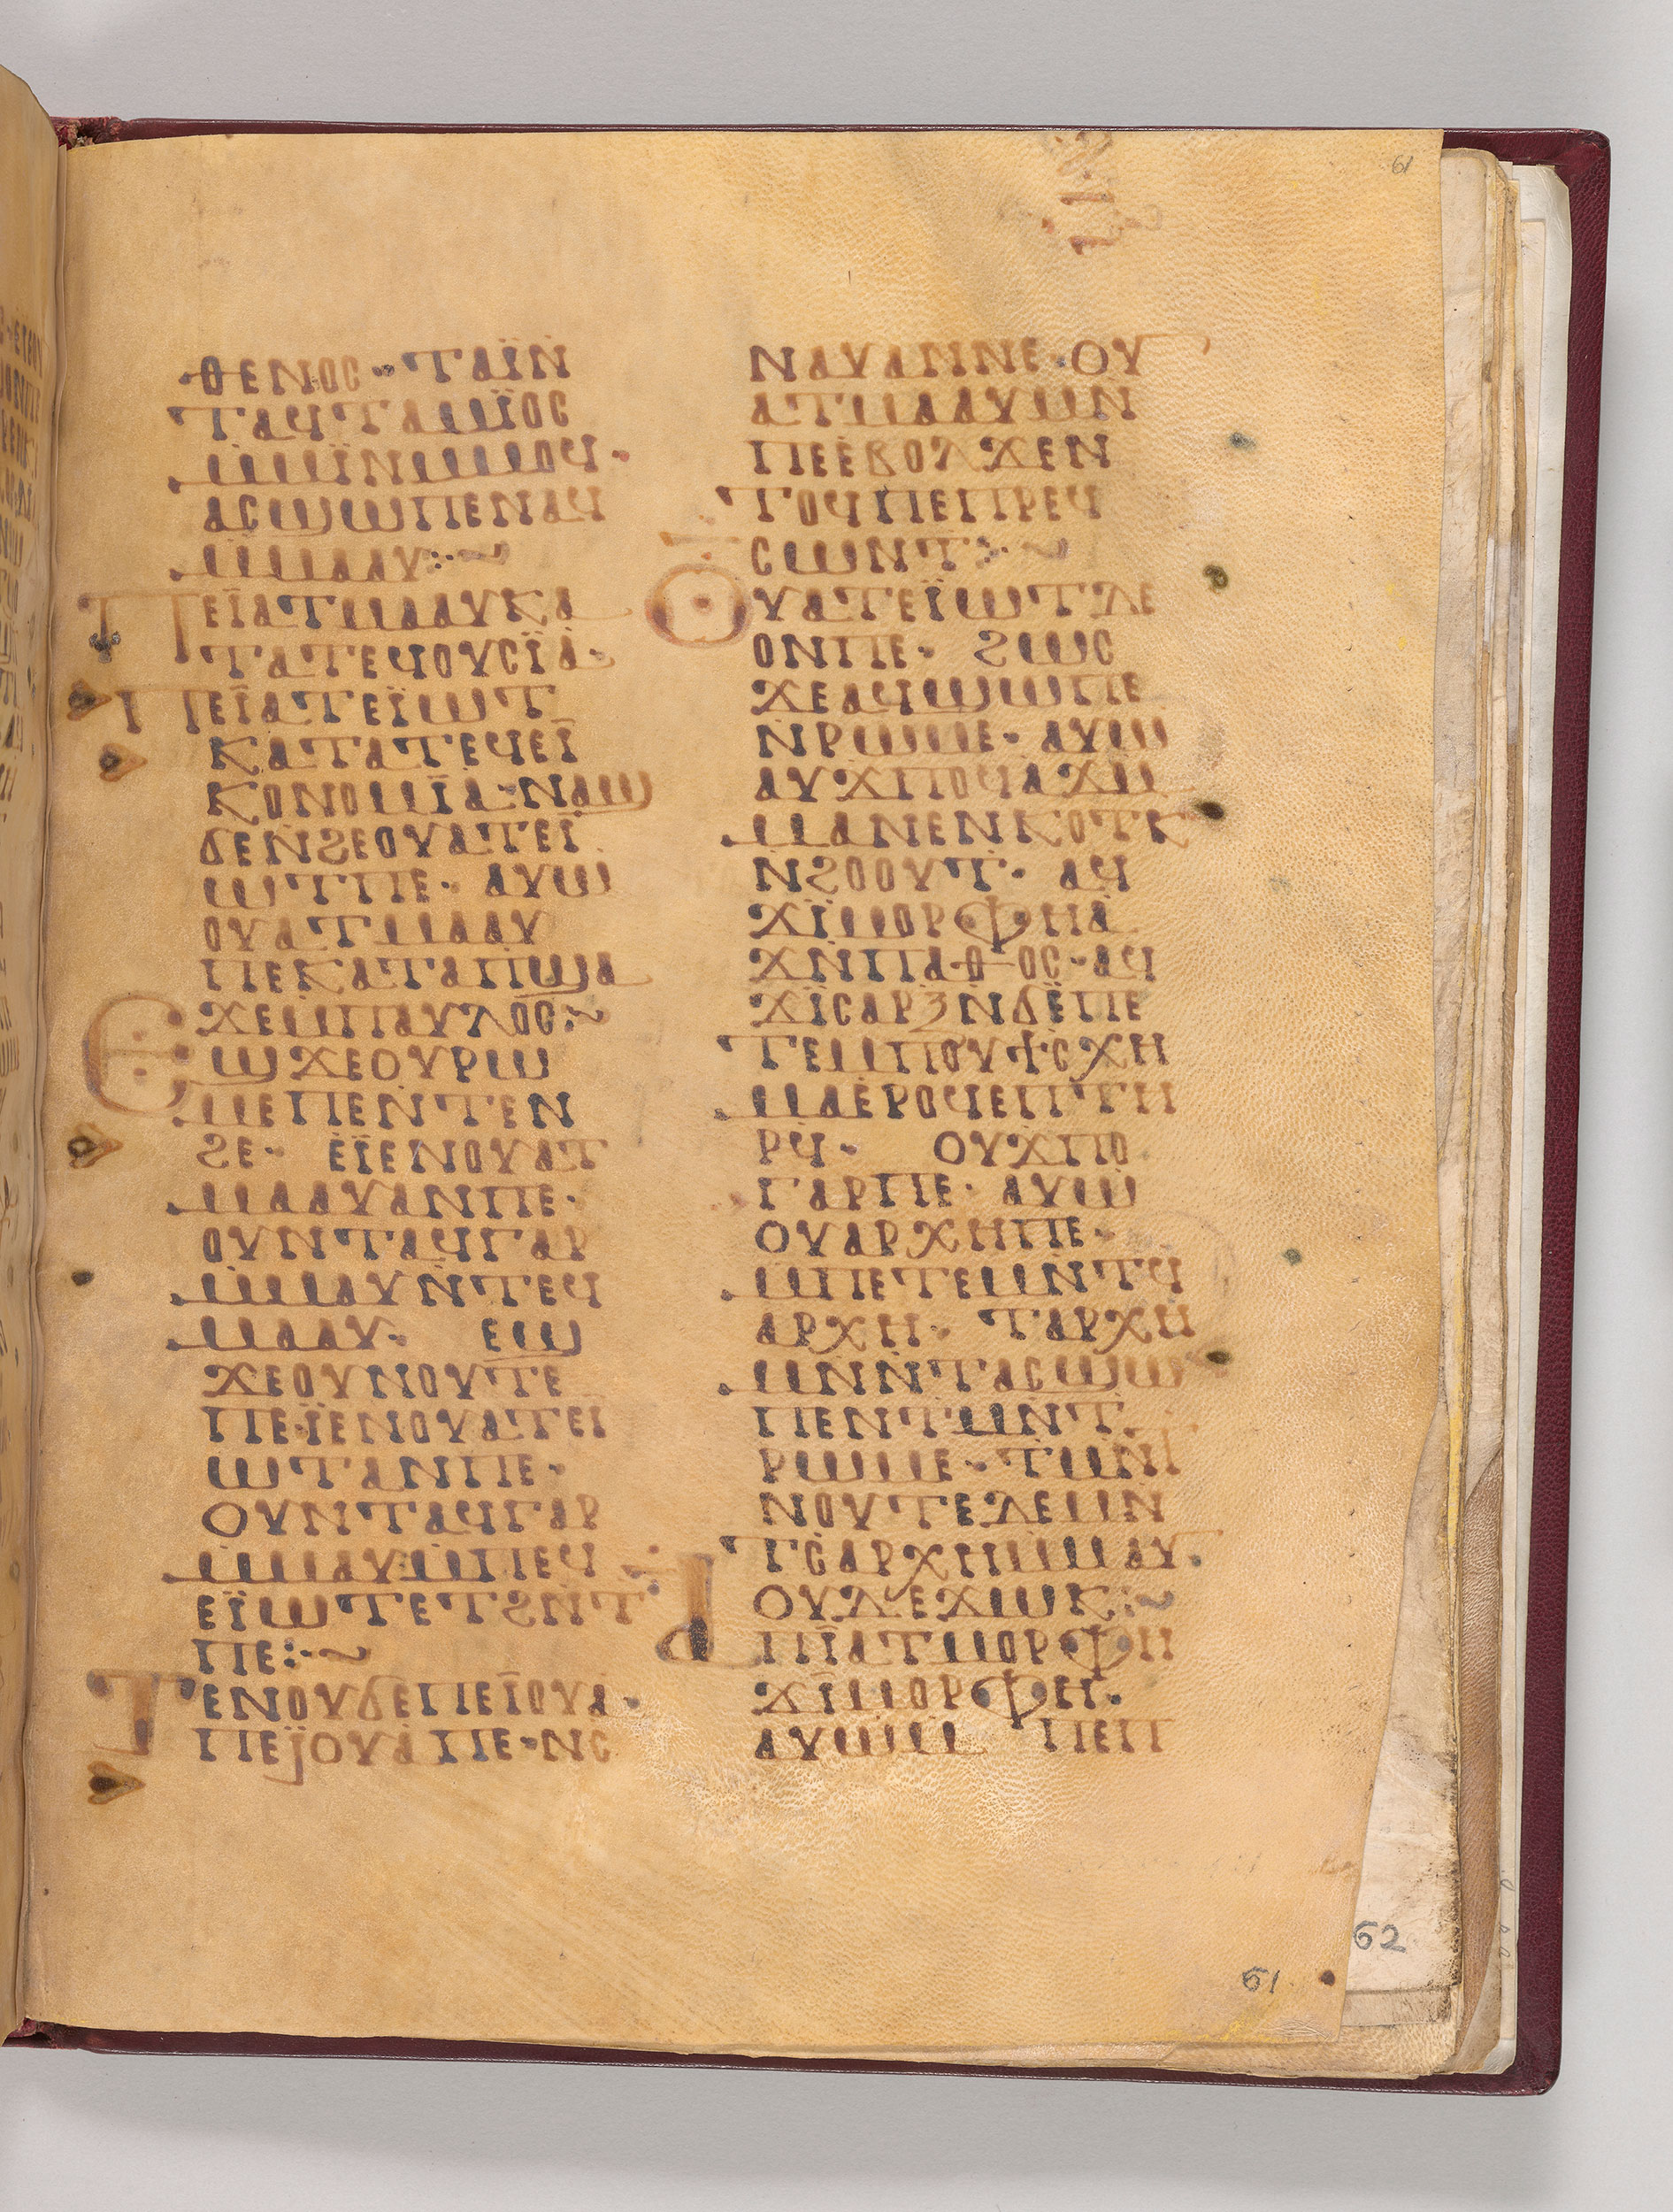 61
ⲑⲉⲛⲟⲥ· ⲧⲁⲓ̈ⲛ̇
ⲧⲁϥⲧⲁⲙⲓ̈ⲟⲥ
ⲙ̇ⲙⲓ̈ⲛⲙ̇ⲙⲟϥ·
ⲁⲥϣⲱⲡⲉⲛⲁϥ
ⲙ̇ⲙⲁⲁⲩ:~
Ⲡⲉⲓ̈ⲁⲧⲙⲁⲁⲩⲕⲁ
ⲧⲁⲧⲉϥⲟⲩⲥⲓ̈ⲁ·
ⲡⲉⲓ̈ⲁⲧⲉⲓ̈ⲱⲧ
ⲕⲁⲧⲁⲧⲉϥⲉⲓ̈
ⲕⲟⲛⲟⲙⲓ̈ⲁ·ⲛⲁϣ
ϭⲉⲛ̇ϩⲉⲟⲩⲁⲧⲉⲓ̈
ⲱⲧⲡⲉ· ⲁⲩⲱ
ⲟⲩⲁⲧⲙⲁⲁⲩ
ⲡⲉⲕⲁⲧⲁⲡϣⲁ
ϫⲉⲙ̇ⲡⲁⲩⲗⲟⲥ:~
Ⲉϣϫⲉⲟⲩⲣⲱ
ⲙⲉⲡⲉⲛ̇ⲧⲉⲛ
ϩⲉ· ⲉⲓ̈ⲉⲛⲟⲩⲁⲧ
ⲙⲁⲁⲩⲁⲛⲡⲉ·
ⲟⲩⲛⲧⲁϥⲅⲁⲣ
ⲙ̇ⲙⲁⲩⲛ̇ⲧⲉϥ
ⲙⲁⲁⲩ· ⲉϣ
ϫⲉⲟⲩⲛⲟⲩⲧⲉ
ⲡⲉ·ⲓ̈ⲉⲛⲟⲩⲁⲧⲉⲓ̈
ⲱⲧⲁⲛⲡⲉ·
ⲟⲩⲛⲧⲁϥⲅⲁⲣ
ⲙ̇ⲙⲁⲩ·ⲙ̇ⲡⲉϥ
ⲉⲓ̈ⲱⲧⲉⲧϩⲛ̇ⲧ
ⲡⲉ:·~
Ⲧⲉⲛⲟⲩϭⲉⲡⲉⲓ̈ⲟⲩⲁ·
ⲡⲉⲓ̈ⲟⲩⲁⲡⲉ·ⲛⲥ
ⲛⲁⲩⲁⲛⲛⲉ·ⲟⲩ
ⲁⲧⲙⲁⲁⲩⲙⲛ
ⲡⲉⲉ̇ⲃⲟⲗϫⲉⲛ
ⲧⲟϥⲡⲉⲡⲣⲉϥ
ⲥⲱⲛⲧ:·~
Ⲟⲩⲁⲧⲉⲓ̈ⲱⲧⲇⲉ
ⲟⲛⲡⲉ· ϩⲱⲥ
ϫⲉⲁϥϣⲱⲡⲉ
ⲛ̇ⲣⲱⲙⲉ· ⲁⲩⲱ
ⲁⲩϫⲡⲟϥⲁϫⲙ
ⲙⲁⲛⲉⲛⲕⲟⲧⲕ
ⲛϩⲟⲟⲩⲧ· ⲁϥ
ϫⲓ̈ⲙⲟⲣⲫⲏⲁ
ϫⲛ̇ⲡⲁⲑⲟⲥ·ⲁϥ
ϫⲓ̈ⲥⲁⲣⲝ̇ⲛϭⲉ̈ⲡⲉ
ⲧⲉⲙ̇ⲡⲟⲩϯⲥⲭⲏ
ⲙⲁⲉ̇ⲣⲟϥⲉⲡⲧⲏ
ⲣϥ̇· ⲟⲩϫⲡⲟ
ⲅⲁⲣⲡⲉ· ⲁⲩⲱ
ⲟⲩⲁⲣⲭⲏⲡⲉ·
ⲙ̇ⲡⲉⲧⲉⲙⲛ̇ⲧϥ̇
ⲁⲣⲭⲏ· ⲧⲁⲣⲭⲏ
ⲙⲛ̇ⲛ̇ⲧⲁⲥϣⲱ
ⲡⲉⲛⲧⲙⲛⲧ
ⲣⲱⲙⲉ· ⲧⲙⲛⲧ
ⲛⲟⲩⲧⲉⲇⲉⲙⲛ
ⲧⲥ̇ⲁⲣⲭⲏⲙ̇ⲙⲁⲩ·
ⲟⲩⲇⲉϫⲱⲕ:~
Ⲁⲡⲓ̈ⲁⲧⲙⲟⲣⲫⲏ
ϫⲓ̈ⲙⲟⲣⲫⲉⲓ·
ⲁⲩⲱⲙ̇ ⲡⲉⲡ
62
61